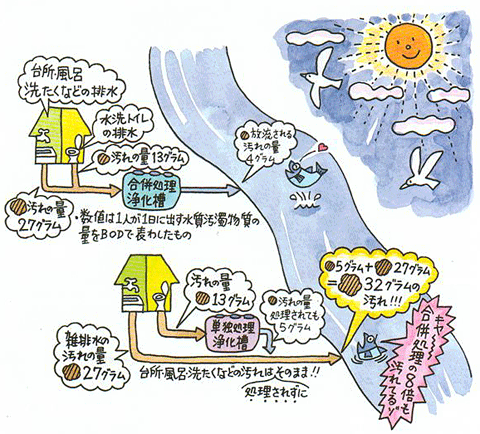 台所・風呂
洗たくなどの排水
水洗トイレ
の排水
汚れの量13グラム
汚れの量
27グラム
合併処理
浄化槽
放流される
汚れの量
4グラム
・数値は1人が1日に出す水質汚濁物質の
量をBODで表わしたもの
汚れの量
13グラム
単独処理
浄化槽
汚れの量
処理されても
5グラム
雑排水の
汚れの量
27グラム
台所・風呂・洗たくなどの汚れはそのまま!!
処理されずに
5グラム+27グラム
=32グラムの
汚れ!!!
キャー
合併処理の8倍も
汚れてるゾ